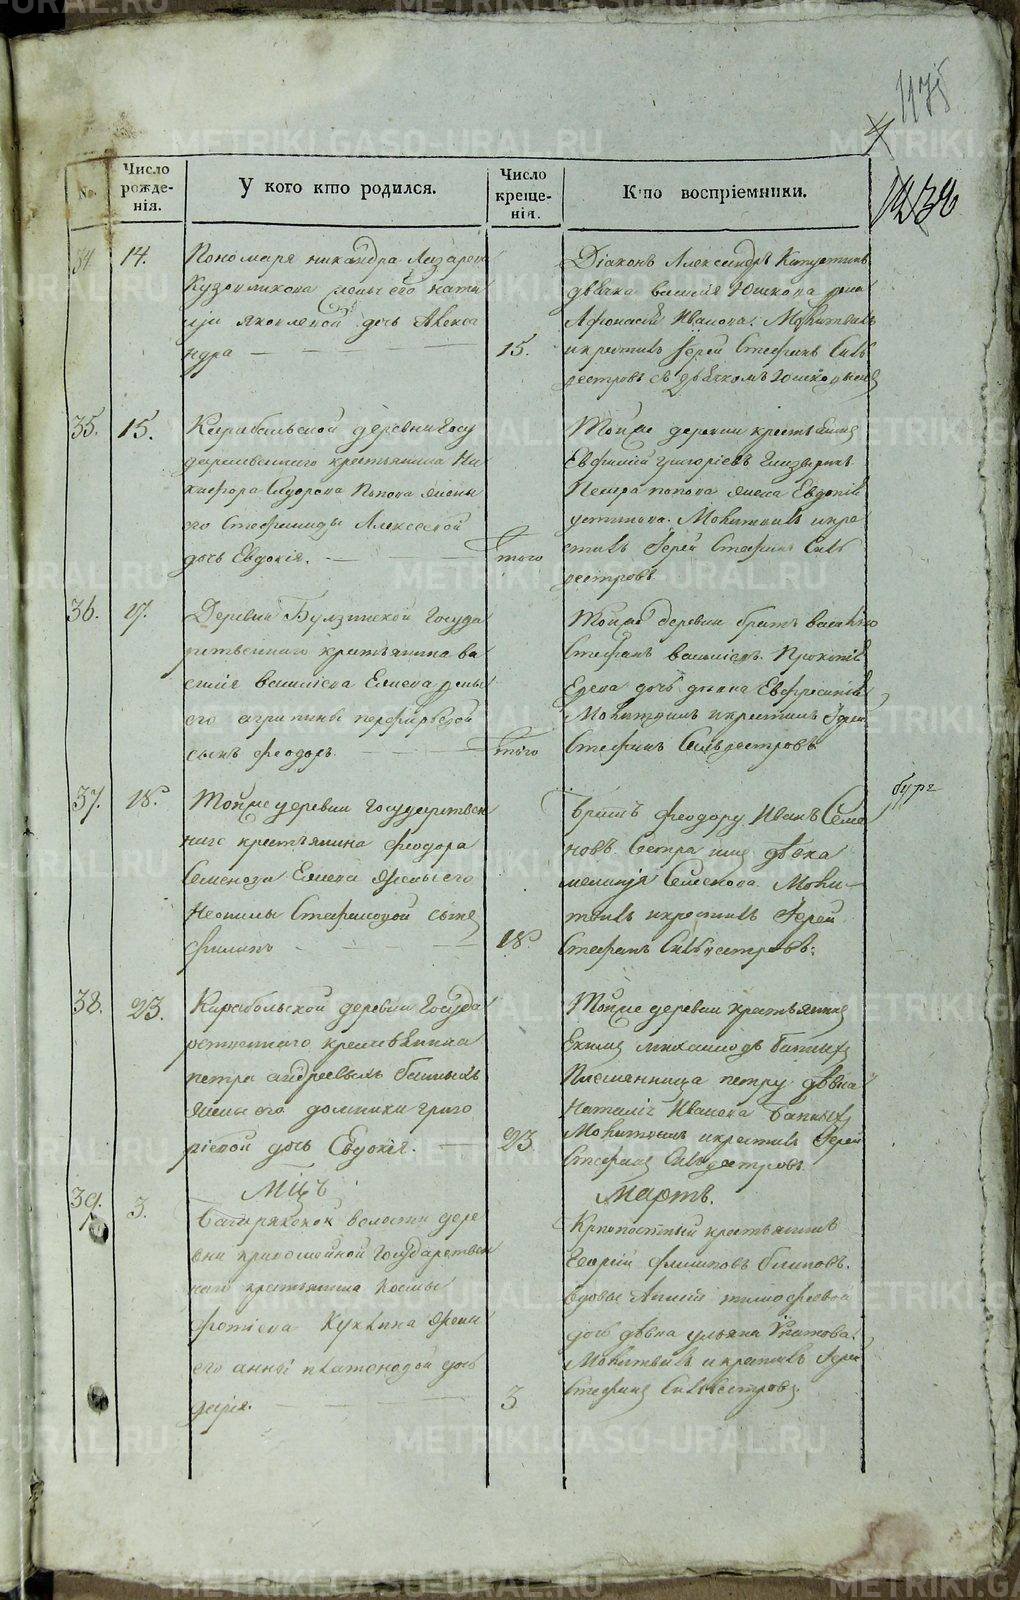 1175
4
1238
№.
Число рожде-нія.
У кого кто родился.
Число креще-нія.
Кто воспріемники.
34
14.
Пономаря никандра Лазарев
жены его ната
ліи Яковлевой дочь Алекса
ндра
15.
Діаконъ Александръ Капустинъ
дьячка василія Юшкова
Афонасій Иванова. Молитвилъ
и крестилъ Іерей Стефанъ Силь
вестровъ съ дьячкомъ Юшковымъ
35.
15.
деревни Госу
дарственнаго крестьянина Ни
кифора Сидорова Попова жены
его Стефаниды Алексеевой
дочь Евдокія.
того
Тойже деревни крестьянинъ
Евфимій григоріевъ
Петра попова жена Евдокія
устинова. Молитвилъ и кре
стилъ Іерей Стефанъ Силь
вестровъ
36.
17.
Деревни Булзинской Госуда
рственнаго крестьянина ва
силія василіева Елиева жены
его агрипины перфирьевой
сынъ феодоръ.
того
Тойже деревни братъ василью
Стефанъ василіевъ. Прокопія
Елева дочь девка Евфросинія
Молитвилъ и крестилъ Іерей
Стефанъ Сильвестровъ
37.
18.
Тойже деревни Государствен
наго крестьянина феодора
Семенова Елиева жены его
Неонилы Стефановой сынъ
филипъ
18.
Братъ феодору Иванъ Семе
новъ Сестра ихъ девка
меланія Семенова. Моли-
твилъ и крестилъ Іерей
Стефанъ Сильвестровъ.
38.
23.
деревни Госуда
рственнаго крестьянина
петра андреевыхъ батыхъ
жены его домники григо
ріевой дочь Евдокія.
23
Тойже деревни крестьянинъ
Екимъ михаиловъ батыхъ
Племянница петру девка
Наталія Иванова батыхъ
Молитвилъ и крестилъ Іерей
Стефанъ Сильвестровъ.
Мцъ
Мартъ.
39.
3.
Багарякской волости дере
вни Государствен
наго крестьянина космы
фотіева Кукина жены
его анны платоновой дочь
дарія.
3
крестьянинъ
Георгій филиповъ
вдовы тимофеевой
дочь девка ульяна
Молитвилъ и крестилъ Іерей
Стефанъ Сильвестровъ.
METRIKI.GASO-URAL.RU